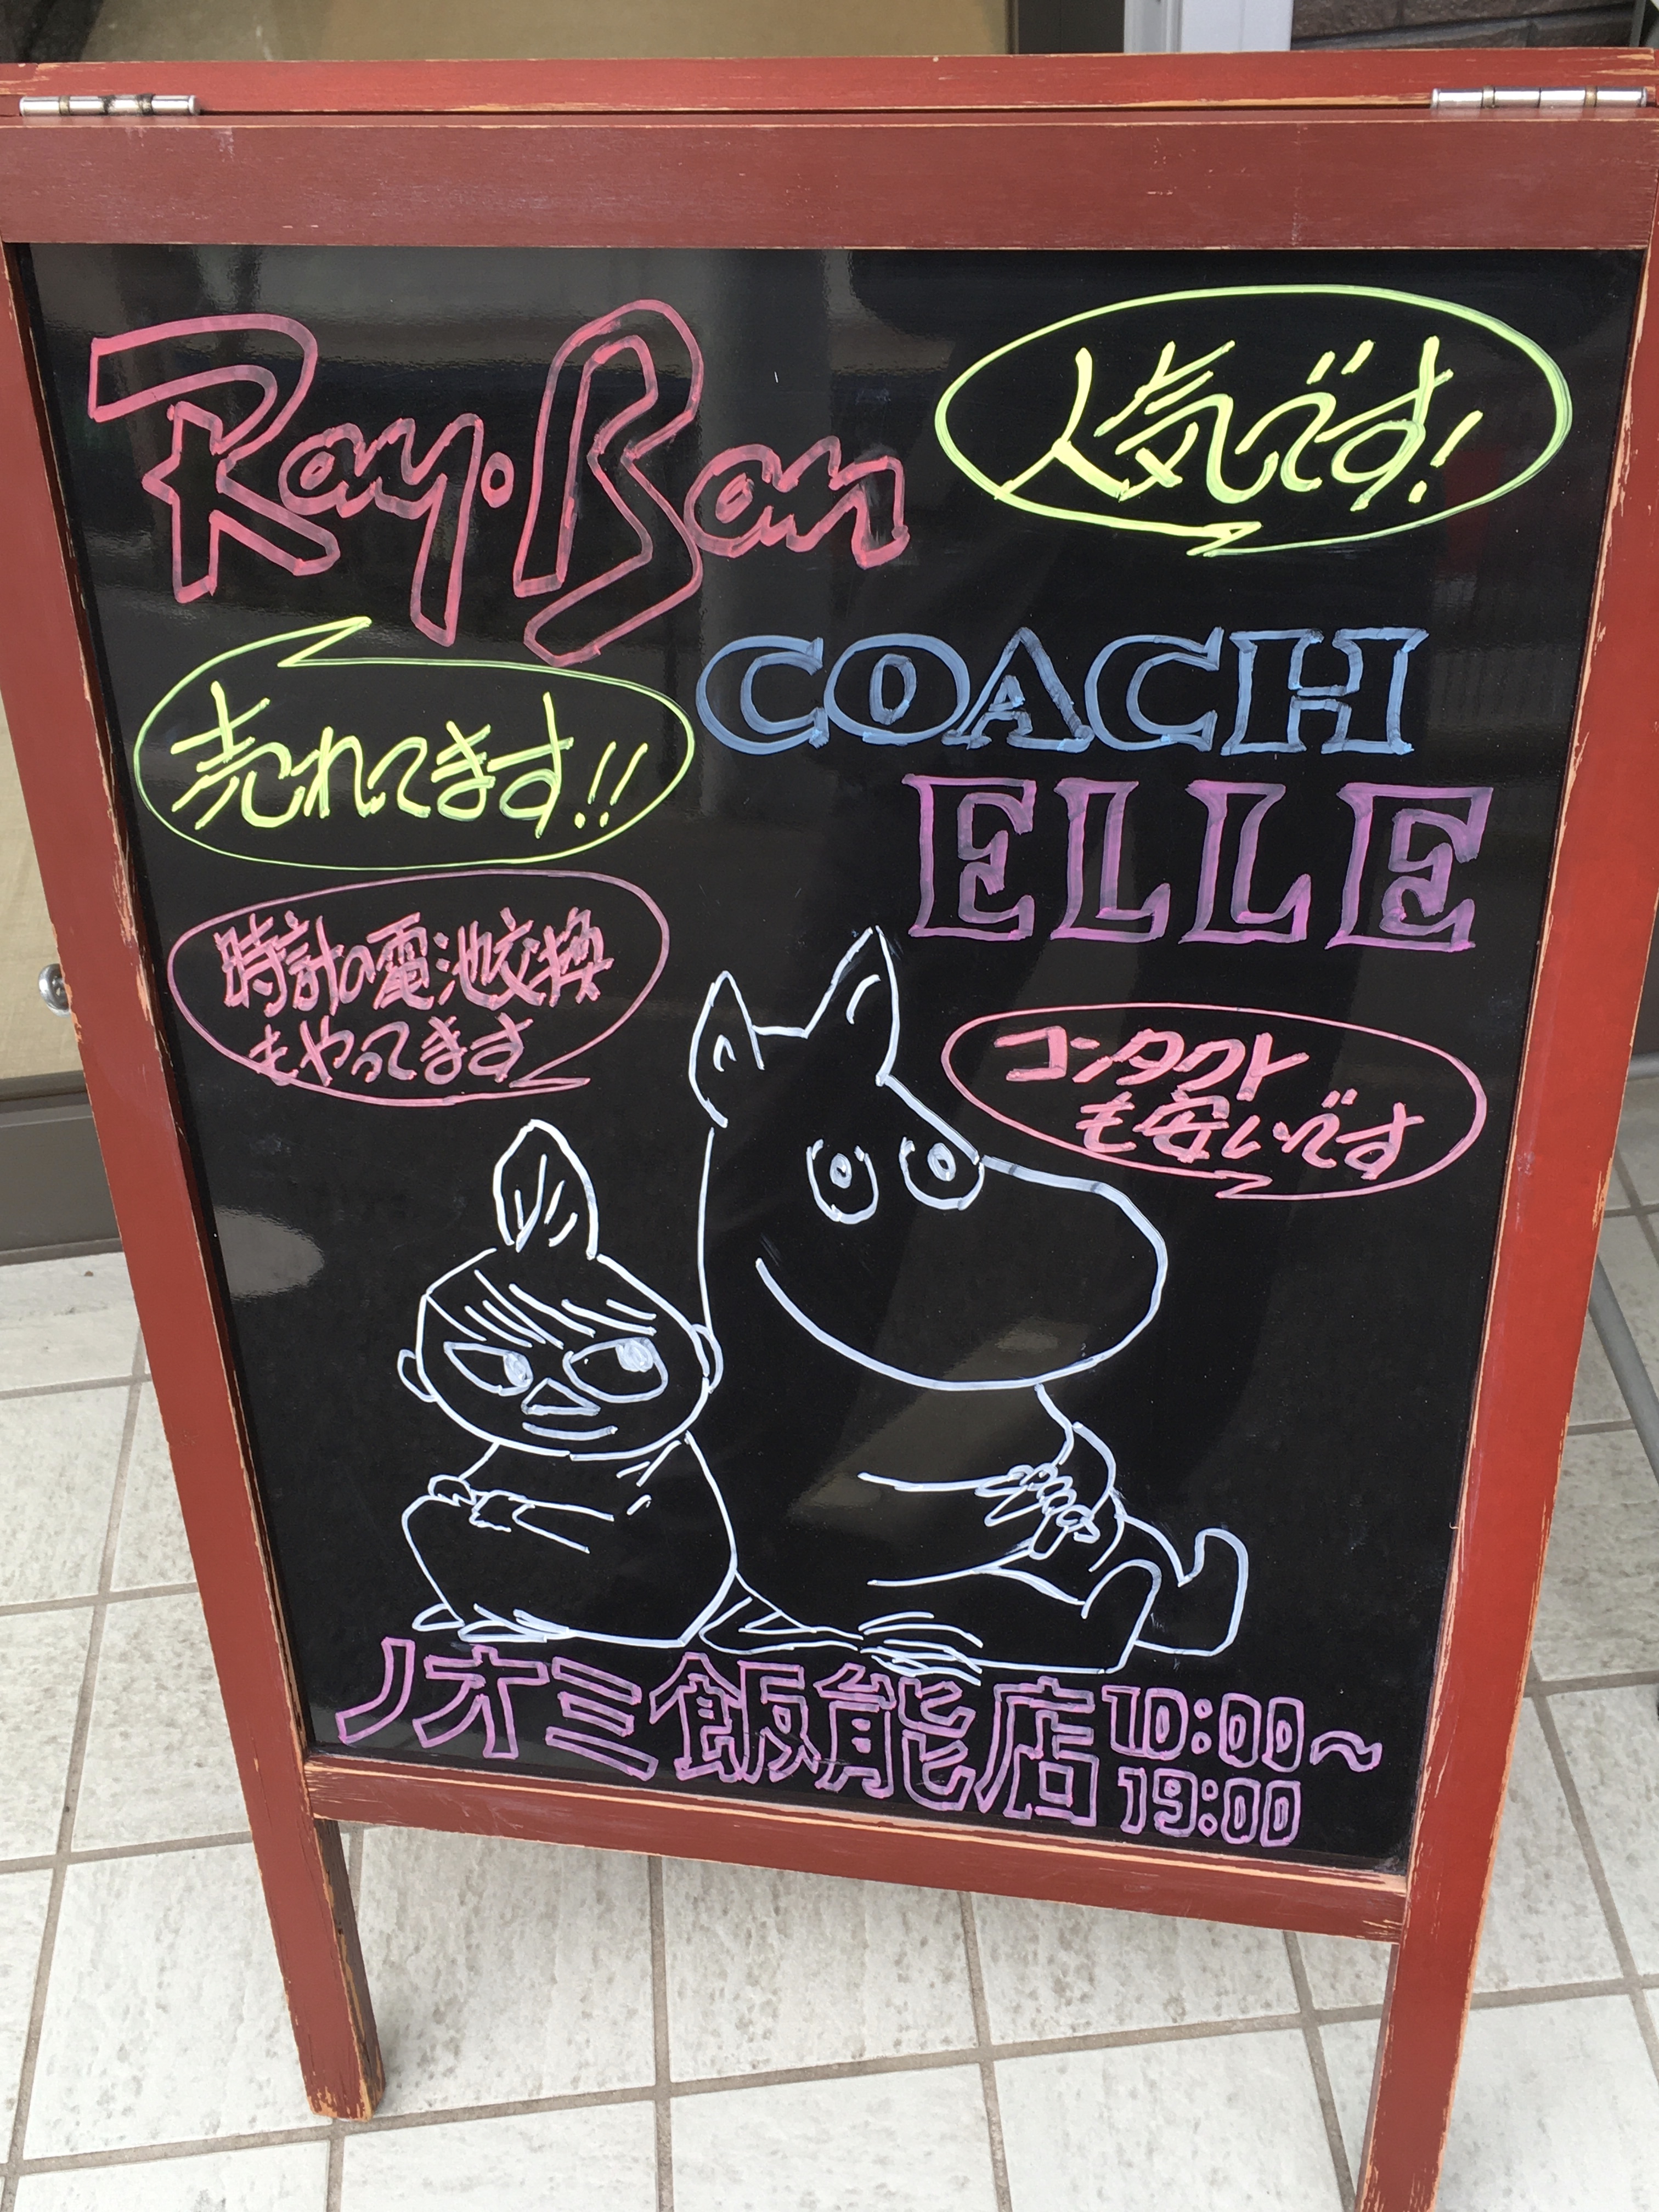 Ray-Ban
人気です!
売れてます!!
COACH
ELLE
時計の電池交換
もやってます
コンタクト
も安いです
ノオミ飯能店
10:00~
19:00